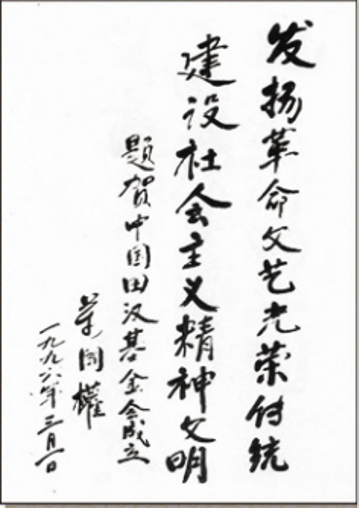 发扬革命文艺光荣传统
建设社会主义精神文明
题贺中国田汉基金会成立
萬国權
一九九六年三月一日